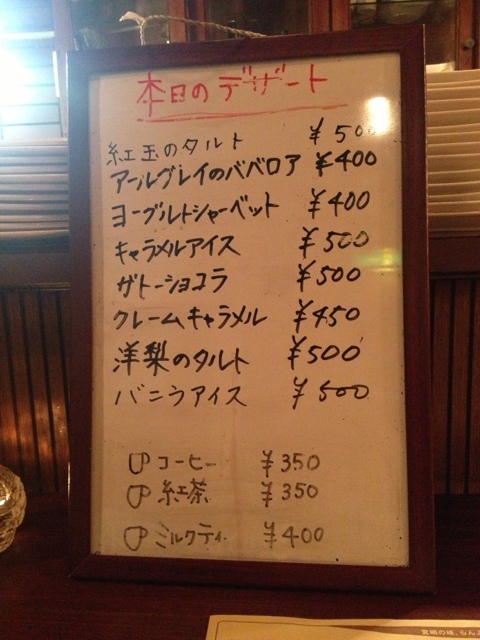 本日のデザート
紅玉のタルト ¥500
アールグレイのババロア ¥400
ヨーグルトシャーベット ¥400
キャラメルアイス ¥500
ガトーショコラ ¥500
クレームキャラメル ¥450
洋梨のタルト ¥500
バニラアイス ¥500
コーヒー ¥350
紅茶 ¥350
ミルクティ ¥400